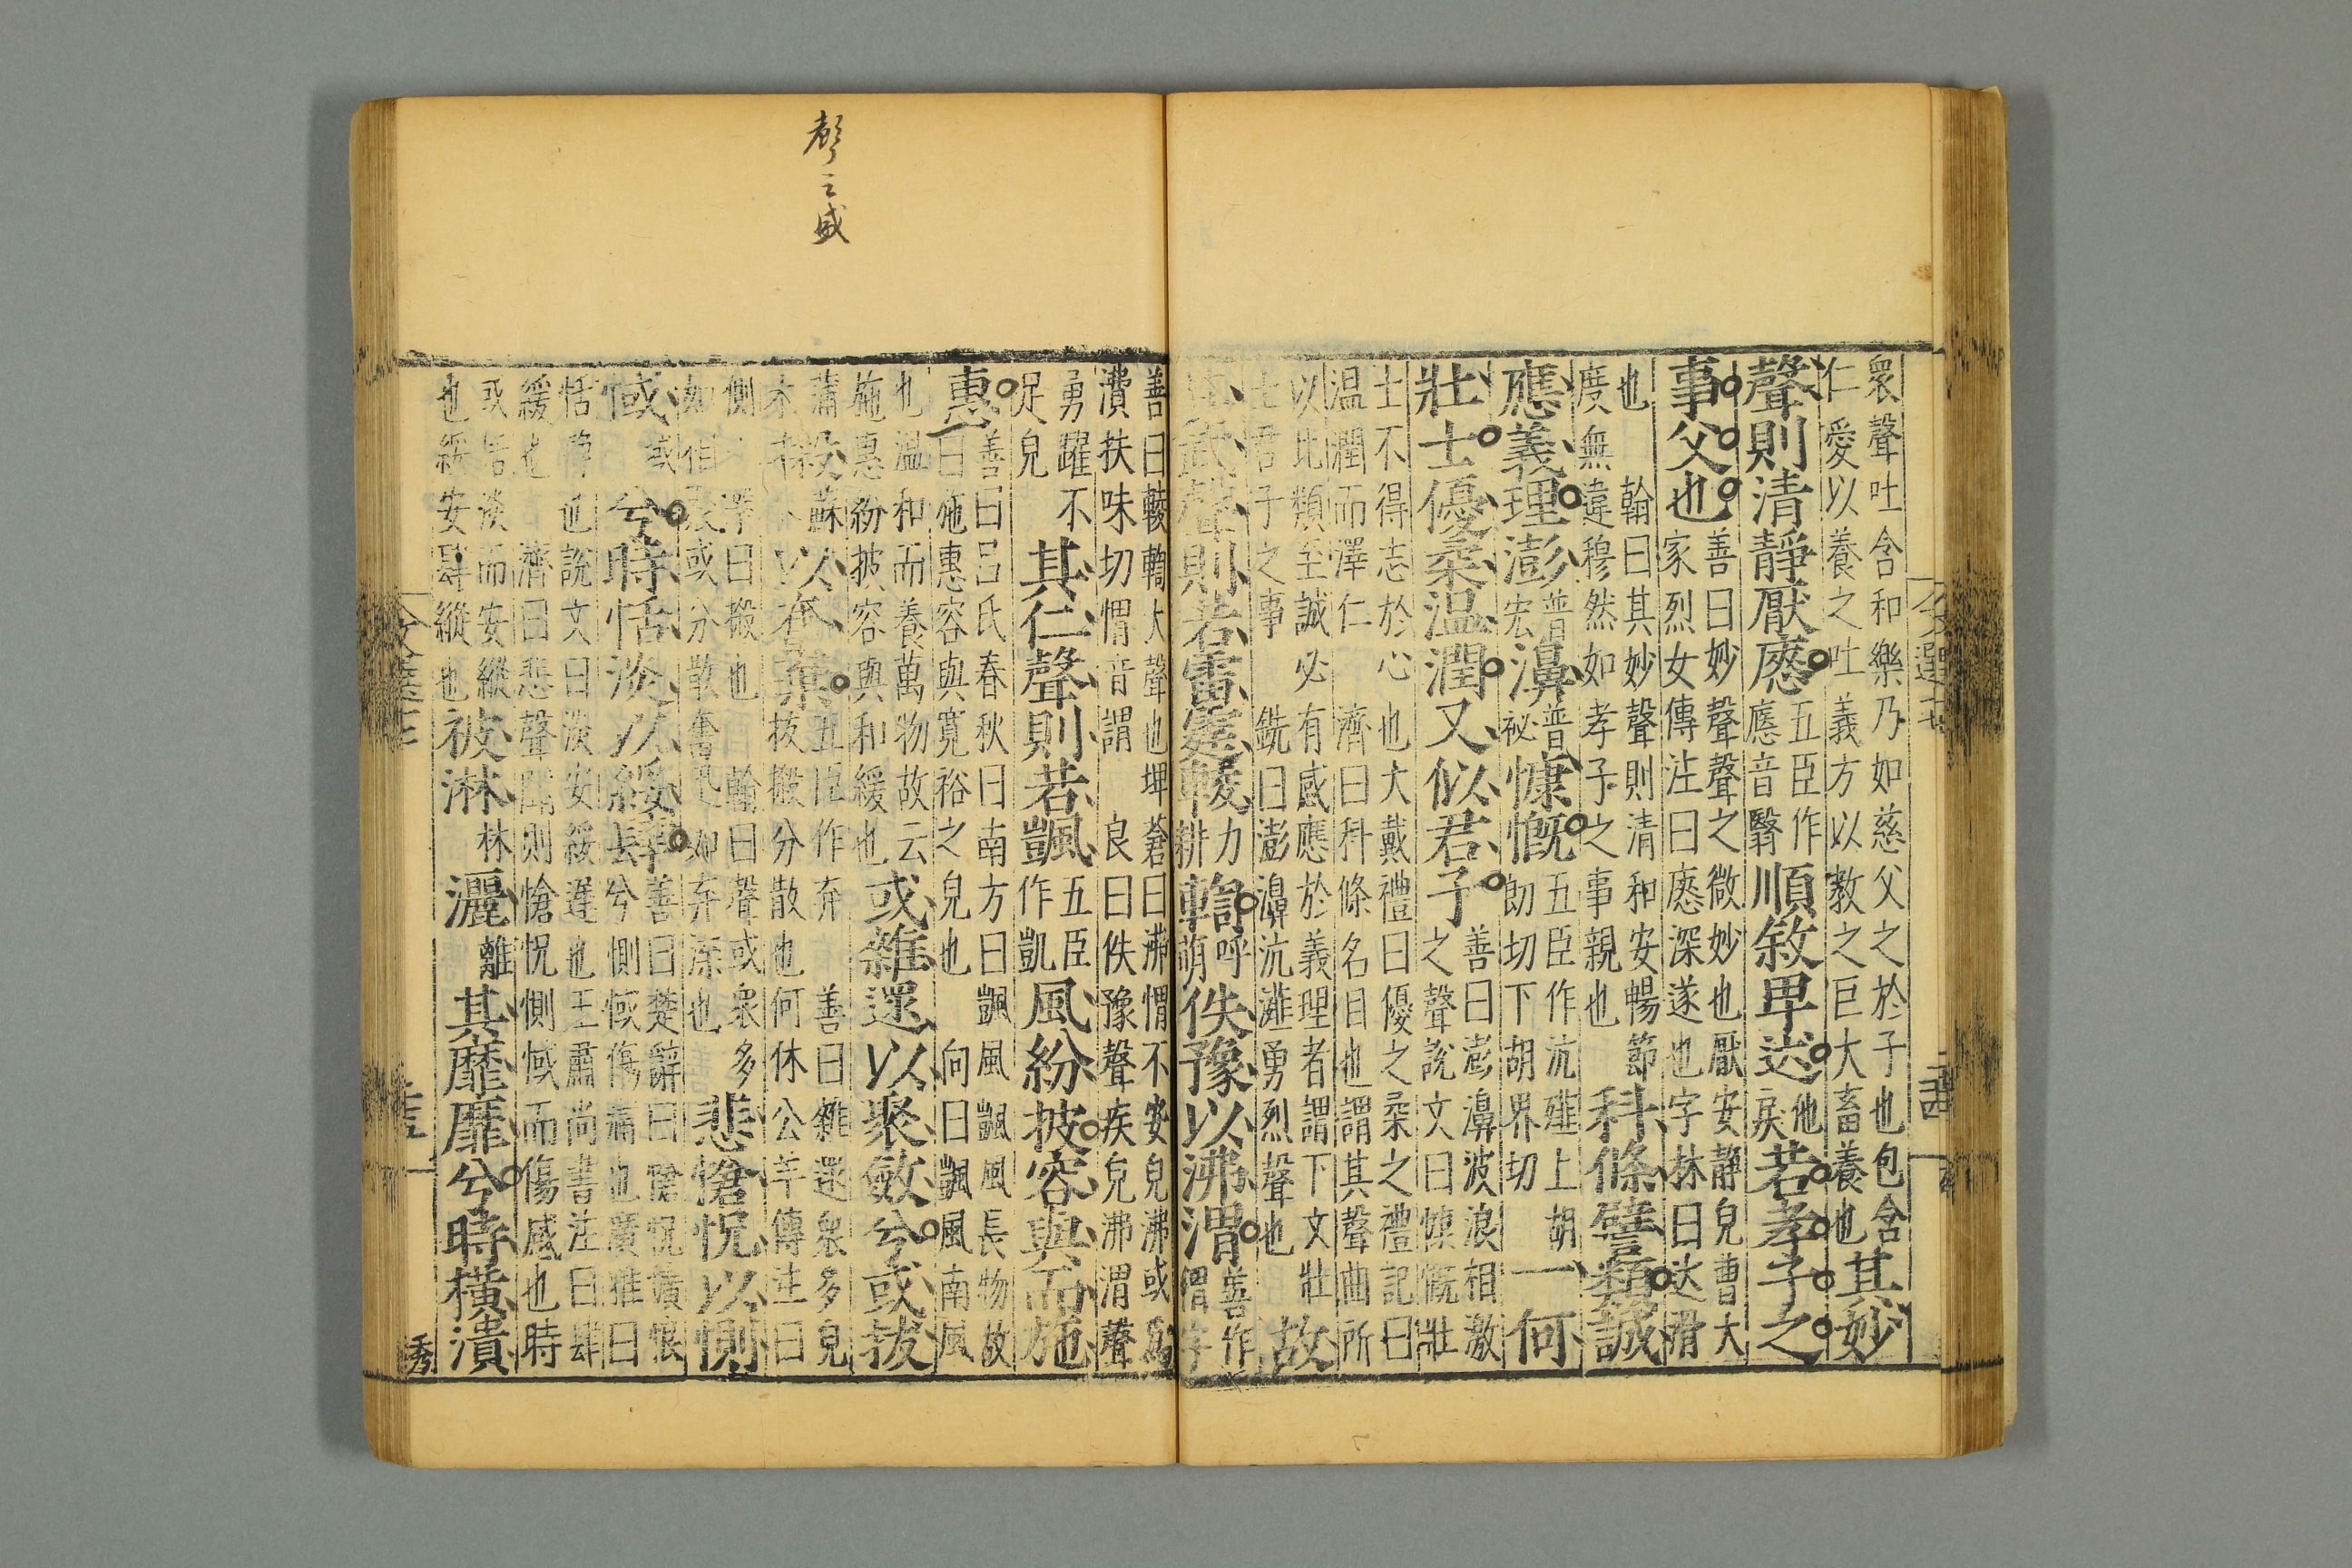 衆聲吐含和樂乃如慈父之於子也包含
仁愛以養之吐義方以教之巨大畜養也
其妙
聲則清靜厭㥷
五臣作
應音翳
順敘卑迖
他
戾
若孝子之
事父也
善曰妙聲聲之微妙也厭安靜皃曹大
家烈女傳注曰㥷深遂也字林曰达滑
也
翰曰其妙聲則清和安暢節
度無違穆然如孝子之事親也
科條譬類誠
應義理澎
普
宏
濞
普
祕
慷慨
五臣作沆𤁗上胡
朗切下胡界切
一何
壯士優柔温潤又似君子
善曰澎濞波浪相激
之聲説文曰慷慨壯
士不得志於心也大戴禮曰優之柔之禮記曰
温潤而澤仁濟曰科條名目也謂其聲曲所
以比類至誠必有感應於義理者謂下文壯
士君子之事銑曰澎濞沆瀣勇烈聲也
故
武聲則若雷霆輘
力
耕
輷
呼
萌
佚豫以沸㥜
善作
渭字
善曰輘輷大聲也埤蒼曰沸㥜不安皃沸或爲
㵒扶味切㥜音謂良曰佚豫聲疾皃沸渭聲
勇躍不
定皃
其仁聲則若颽
五臣
作凱
風紛披容與而施
惠
善曰吕氏春秋曰南方曰颽風颽風長物故
曰施惠容與寛裕之皃也向曰颽風南風
也温和而養萬物故云
施惠紛披容與和緩也
或雜遝以聚斂兮或拔
摋
蘇
以奔棄
五臣作弃
善曰雜遝衆多皃
拔摋分散也何休公羊傳注曰
側手擊曰摋也翰曰聲或衆多
悲愴怳以惻
惐
或
兮時恬淡以綏肆
善曰楚辭曰愴怳懭悢
兮惻惐傷痛也廣雅曰
恬靜也説文曰淡安綏遲也王肅尚書注曰肆
緩也濟曰悲聲則愴怳惻惐而傷感也時
或恬淡而安縱
也綏安肆縱也
被淋
林
灑
離
其靡靡兮時橫潰
聲之感
秀